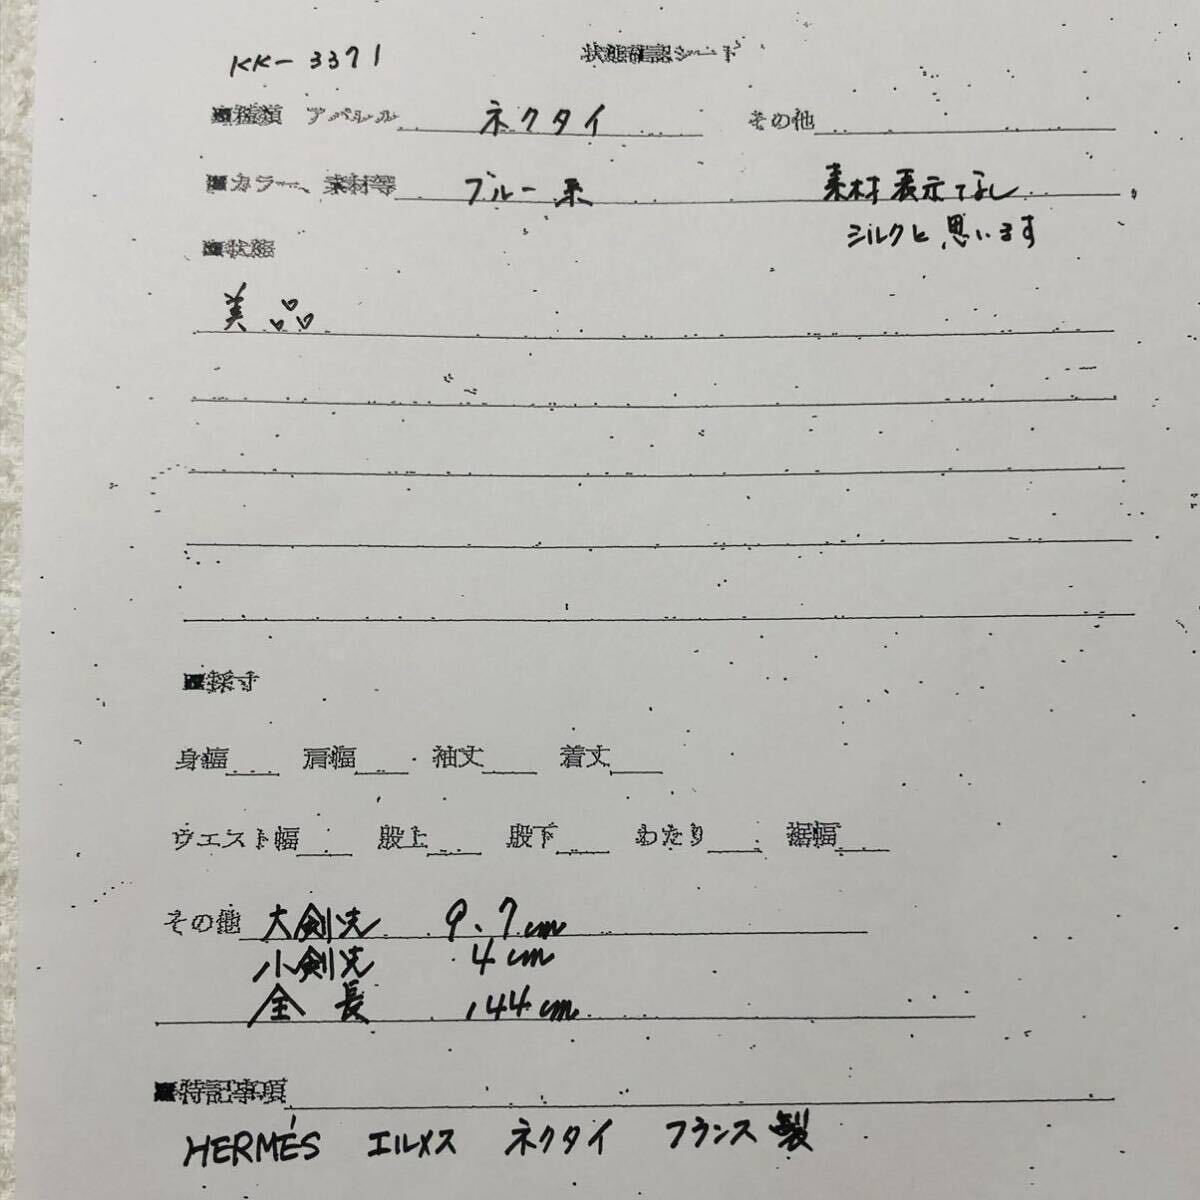 KK-3371 状態確認シート
■種類 アパレル ネクタイ その他
■カラー、素材等 ブルー系 素材表示なし
シルクと思います
■状態
美品
■採寸
身幅 肩幅 袖丈 着丈
ウエスト幅 股上 股下 わたり 裾幅
その他 大剣先 9.7cm
小剣先 4cm
全長 144cm
■特記事項
HERMÉS エルメス ネクタイ フランス製